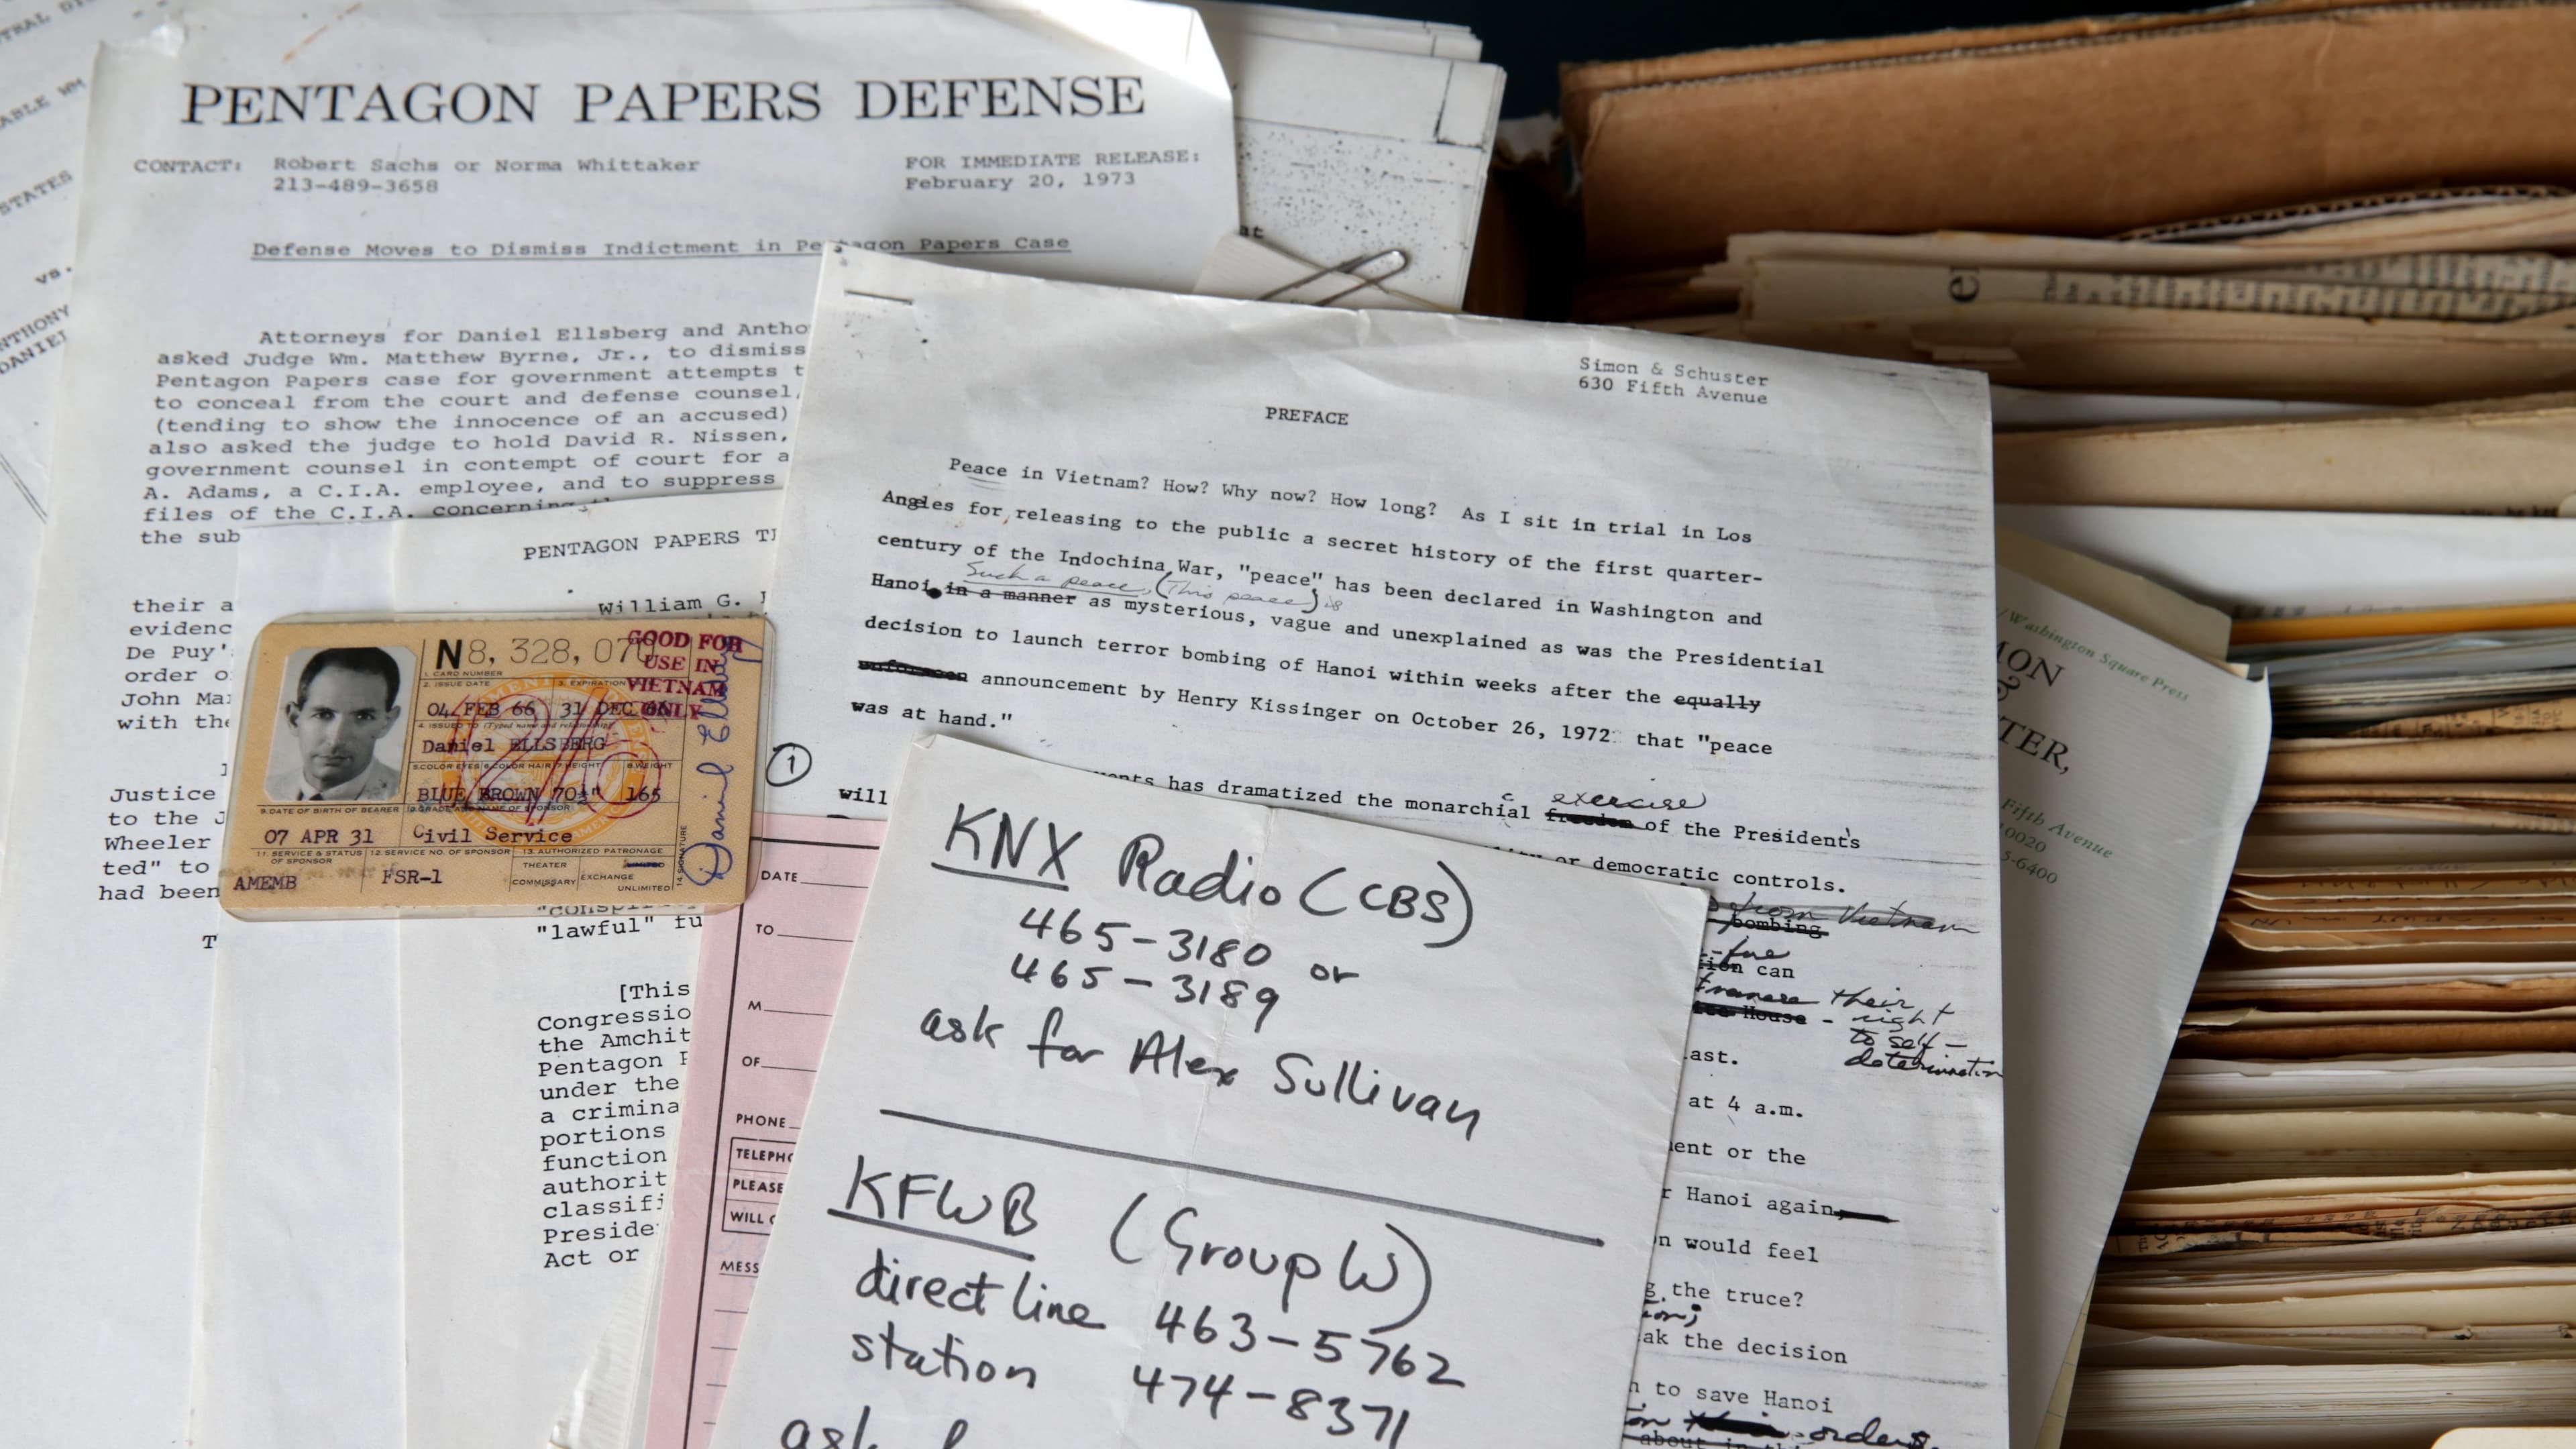 PENTAGON PAPERS DEFENSE
CONTACT: Robert Sachs or Norma Whittaker
213-489-3658
FOR IMMEDIATE RELEASE:
February 20, 1973
Defense Moves to Dismiss Indictment in Pentagon Papers Case
Attorneys for Daniel Ellsberg and Antho
asked Judge Wm. Matthew Byrne, Jr., to dismiss
Pentagon Papers case for government attempts t
to conceal from the court and defense counsel,
(tending to show the innocence of an accused)
also asked the judge to hold David R. Nissen,
government counsel in contempt of court for a
A. Adams, a C.I.A. employee, and to suppress
files of the C.I.A. concerning
the sub
their a
evidenc
De Puy'
order o
John Mar
with the
Justice
to the J
Wheeler
ted" to
had been
T
STATES
vs.
NTHONY
DANIEL
PENTAGON PAPERS
William G.
"lawful" fu
[This
Congressio
the Amchit
Pentagon P
under the
a crimina
portions
function
authorit
classifi
Preside
Act or
N8, 328, 070
GOOD FOR
USE IN
VIETNAM
ONLY
1. CARD NUMBER
2. ISSUE DATE
3. EXPIRATION
04 FEB 66 31 DEC 66
Daniel ELLSBERG
5. COLOR EYES 6. COLOR HAIR 7. HEIGHT 8. WEIGHT
BLUE BROWN 70½" 165
9. DATE OF BIRTH OF BEARER 10. GRADE AND NAME OF SPONSOR
07 APR 31 Civil Service
11. SERVICE & STATUS OF SPONSOR 12. SERVICE NO. OF SPONSOR 13. AUTHORIZED PATRONAGE
AMEMB FSR-1
THEATER
COMMISSARY EXCHANGE
LIMITED
UNLIMITED
14. SIGNATURE
Daniel Ellsberg
Simon & Schuster
630 Fifth Avenue
PREFACE
Peace in Vietnam? How? Why now? How long? As I sit in trial in Los
Angles for releasing to the public a secret history of the first quarter-
century of the Indochina War, "peace" has been declared in Washington and
Such a peace, (This peace) is
Hanoi in a manner as mysterious, vague and unexplained as was the Presidential
decision to launch terror bombing of Hanoi within weeks after the equally
announcement by Henry Kissinger on October 26, 1972 that "peace
was at hand."
1
will
has dramatized the monarchial freedom of the President's
c exercise
or democratic controls.
from Vietnam
bombing
can
their
House - right
to self-
determination
ast.
at 4 a.m.
ent or the
r Hanoi again,
n would feel
g the truce?
ak the decision
n to save Hanoi
orders.
about in
DATE
TO
M
OF
PHONE
TELEPHO
PLEASE
WILL C
MESS
KNX Radio (CBS)
465-3180 or
465-3189
ask for Alex Sullivan
KFWB (Group W)
direct line 463-5762
station 474-8371
ask
Washington Square Press
MON
&
TER,
Fifth Avenue
10020
5-6400